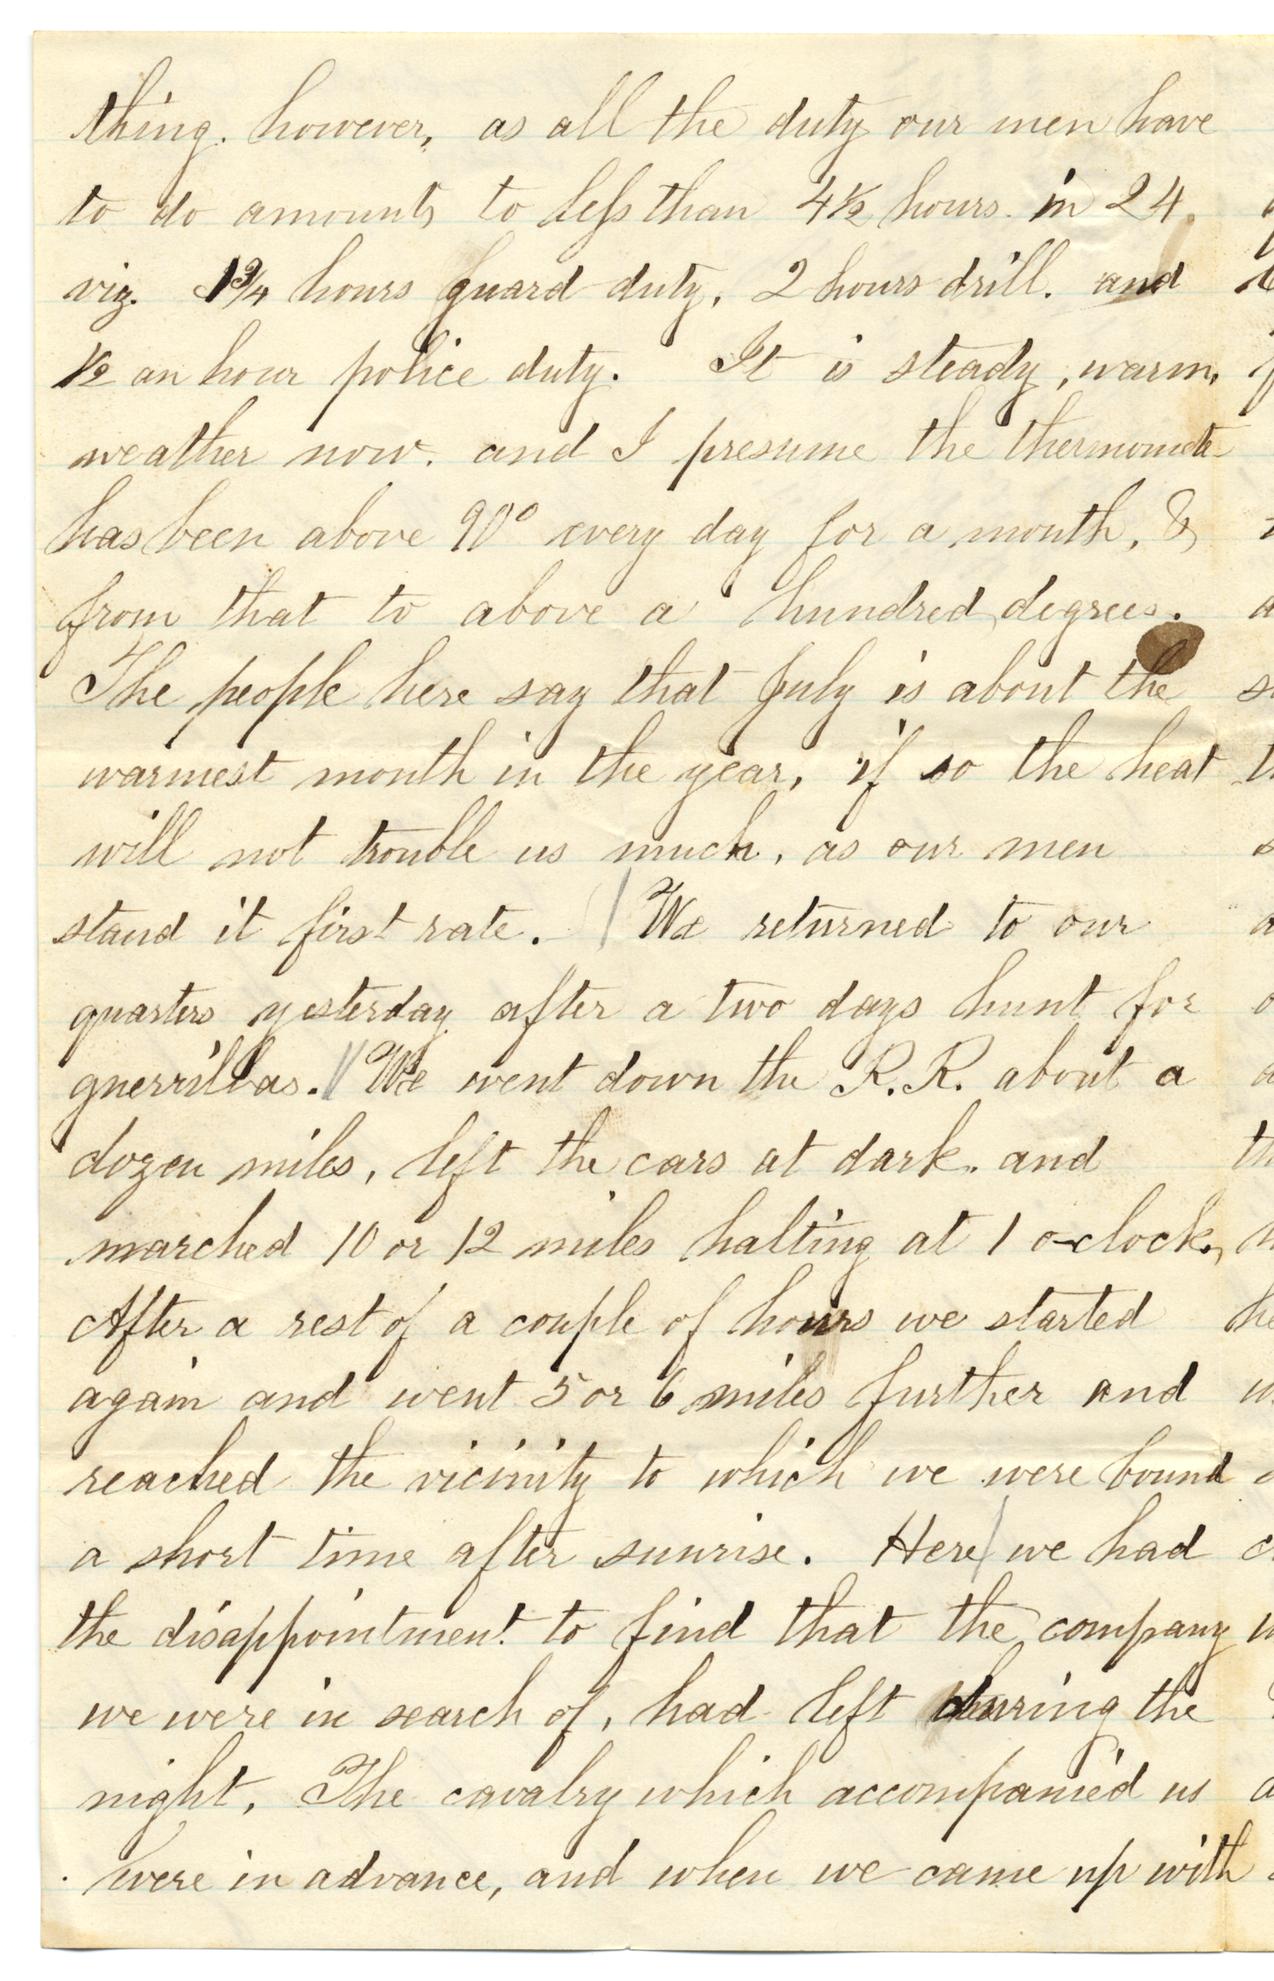 thing. however, as all the duty our men have
to do amounts to less than 4½ hours. in 24.
viz. 1¾ hours guard duty, 2 hours drill. and
½ an hour police duty. It is steady, warm,
weather now. and I presume the thermomete
has been above 90° every day for a month, &
from that to above a hundred degrees.
The people here say that July is about the
warmest month in the year, if so the heat
will not trouble us much, as our men
stand it first rate. We returned to our
quarters yesterday after a two days hunt for
guerrillas. We went down the R.R. about a
dozen miles, left the cars at dark. and
marched 10 or 12 miles halting at 1 o-clock.,
After a rest of a couple of hours we started
again and went 5 or 6 miles further and
reached the vicinity to which we were bound
a short time after sunrise. Here we had
the disappointment to find that the company
we were in search of, had left during the
night. The cavalry which accompanied us
were in advance, and when we came up with